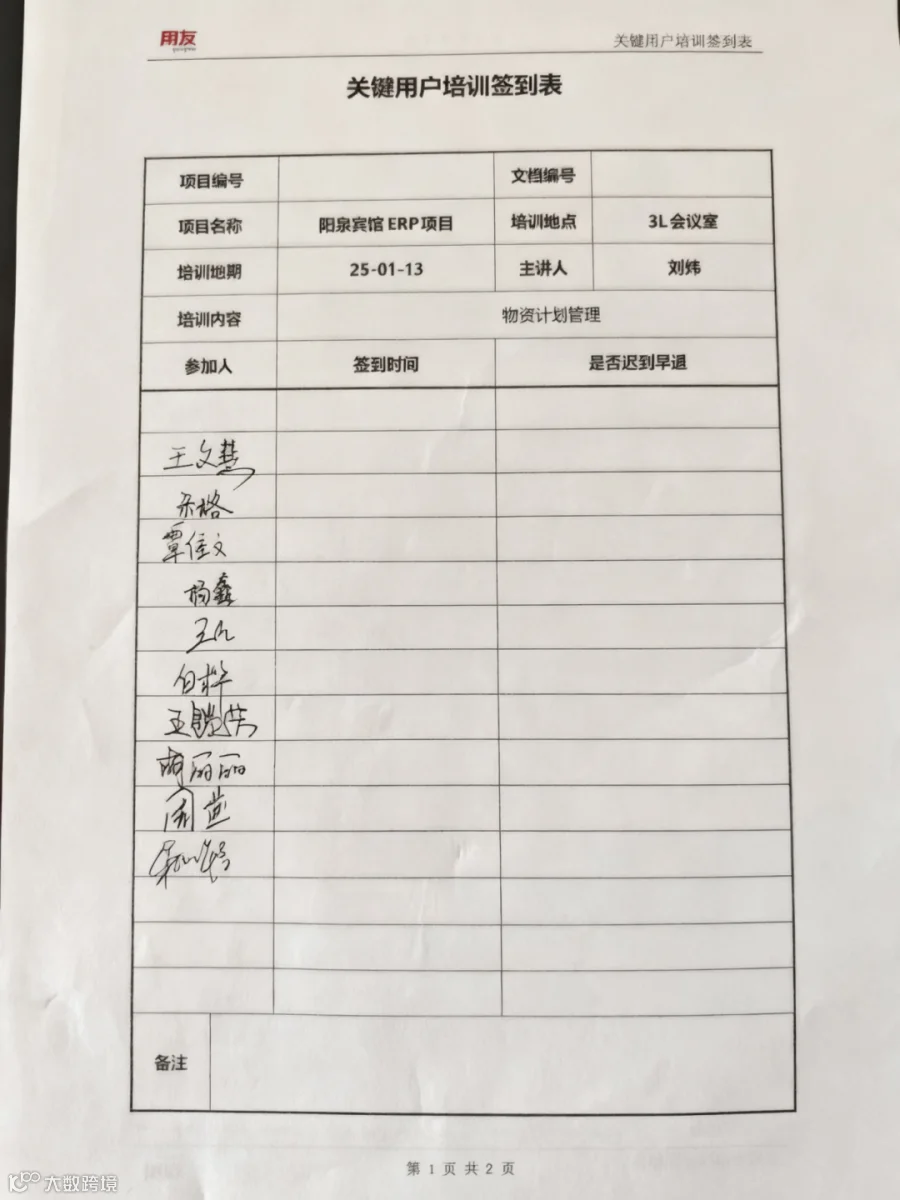 用友
关键用户培训签到表
关键用户培训签到表
项目编号 文档编号
项目名称 阳泉宾馆 ERP 项目 培训地点 3L 会议室
培训地期 25-01-13 主讲人 刘炜
培训内容 物资计划管理
参加人 签到时间 是否迟到早退
王文慧
朱格
覃佳文
杨鑫
白桦
胡丽丽
周燕
备注
第 1 页 共 2 页
大数跨境